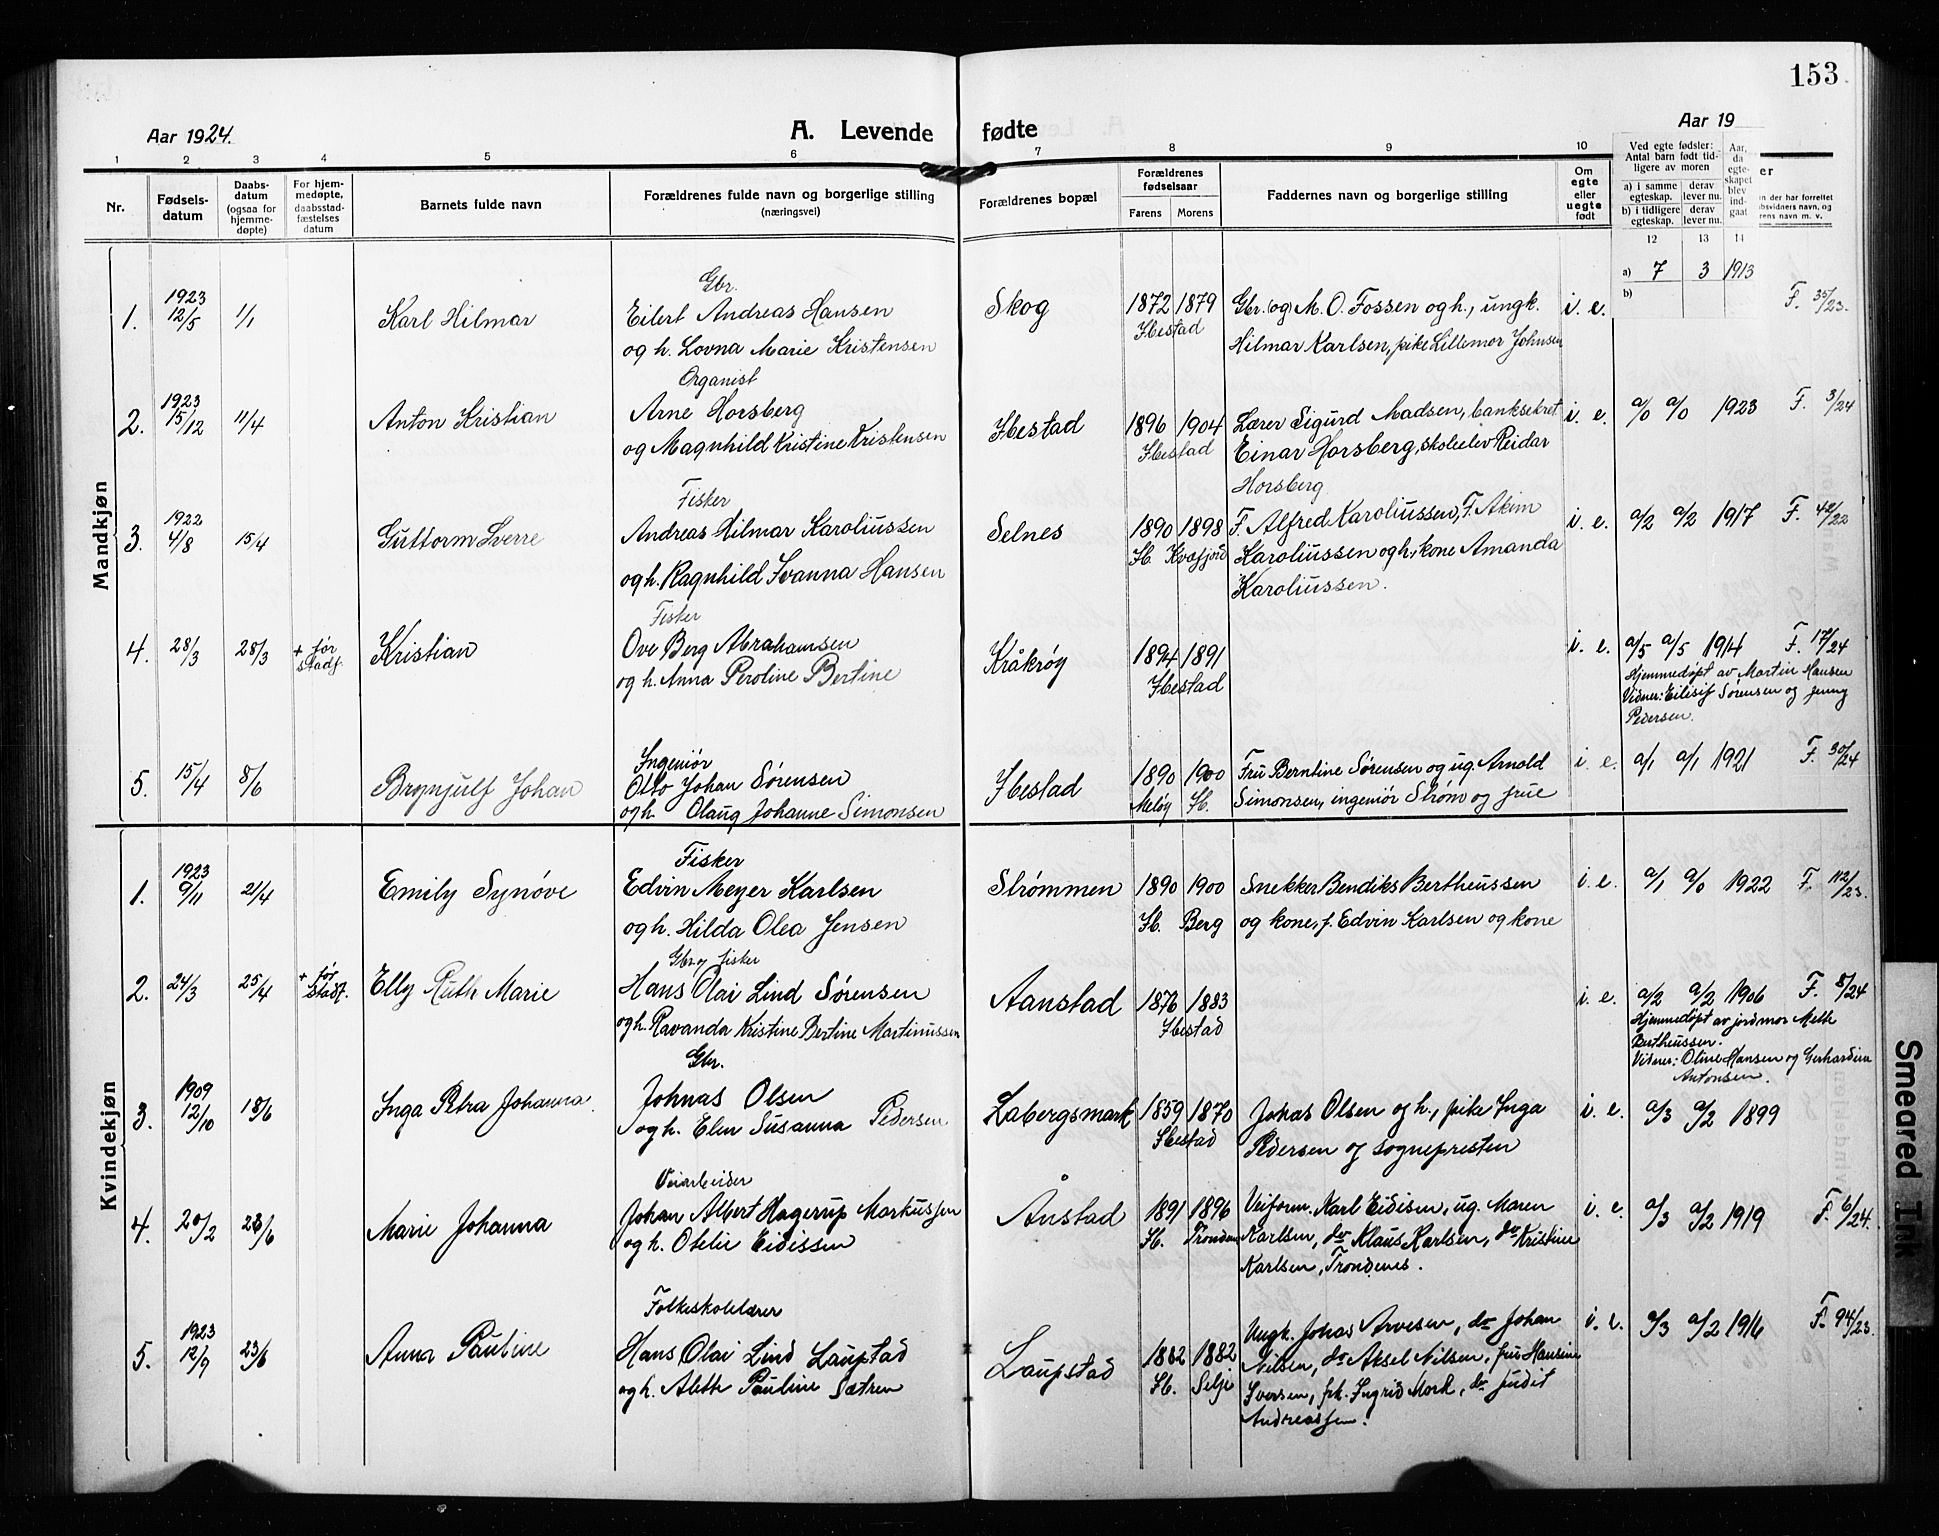 153
Aar 1924.
A. Levende fødte
Aar 19
1 2 3 4 5 6 7 8 9 10
Nr.
Fødsels-
datum
Daabs-
datum
(ogsaa for
hjemme-
døpte)
For hjem-
medøpte,
daabsstad-
fæstelses
datum
Barnets fulde navn
Forældrenes fulde navn og borgerlige stilling
(næringsvei)
Forældrenes bopæl
Forældrenes
fødselsaar
Farens Morens
Faddernes navn og borgerlige stilling
Om
egte
eller
uegte
født
Ved egte fødsler:
Antal barn født tid-
ligere av moren
a) i samme
egteskap.
derav
lever nu.
b) i tidligere
egteskap.
derav
lever nu.
Aar,
da
egte-
skapet
blev
ind-
gaat
12 13 14
er
n der har forrettet
bsvidners navn, og
rens navn m. v.
Mandkjøn
1. 1923 12/5 1/1 Karl Hilmar
Gbr.
Eilert Andreas Hansen
og h. Lovna Marie Kristensen
Skog 1872 1879
Ibestad
Gbr. (og) M. O. Fossen og h., ungk.
Hilmar Karlsen, pike Lillemor Johnsen
i. e. a) 7 3 1913 F. 35/23.
b)
2. 1923 15/12 11/4 Anton Kristian
Organist
Arne Horsberg
og Magnhild Kristine Kristensen
Ibestad 1896 1904
Ibestad
Lærer Sigurd Madsen, banksekret
Einar Horsberg, skoleelev Reidar
Horsberg
i. e. a/0 a/0 1923 F. 3/24
3. 1922 4/8 15/4 Guttorm Sverre
Fisker
Andreas Hilmar Karoliussen
og h. Ragnhild Ivanna Hansen
Selnes 1890 1898
Ib. Kvæfjord
F. Alfred Karoliussen, F. Akim
Karoliussen og h., kone Amanda
Karoliussen.
i. e. a/2 a/2 1917 F. 42/22
4. 28/3 28/3 + før stadf. Kristian
Fisker
Ove Berg Abrahamsen
og h. Anna Peroline Bertine
Kråkrøy 1894 1891
Ibestad
i. e. a/5 a/5 1914 F. 17/24
Hjemmedøpt av Martin Hansen
Vidner: Eilisif Sørensen og Jenny
Pedersen.
5. 15/4 8/6 Brynjulf Johan
Ingeniør
Otto Johan Sørensen
og h. Olaug Johanne Simonsen
Ibestad 1890 1900
Meløy Ib.
Fru Berntine Sørensen og ug. Arnold
Simonsen, ingeniør Strøm og frue
i. e. a/1 a/1 1921 F. 30/24
Kvindekjøn
1. 1923 9/11 21/4 Emily Synøve
Fisker
Edvin Meyer Karlsen
og h. Hilda Olea Jensen
Strømmen 1890 1900
Ib. Berg
Snekker Bendiks Bertheussen
og kone, f. Edvin Karlsen og kone
i. e. a/1 a/0 1922 F. 112/23.
2. 24/3 25/4 + før stadf. Elly Ruth Marie
Gbr. og fisker
Hans Olai Lind Sørensen
og h. Ravanda Kristine Bertine Martinussen
Aanstad 1876 1883
Ibestad
i. e. a/2 a/2 1906 F. 8/24
Hjemmedøpt av jordmor Meth
Bertheussen.
Vidner: Oline Hansen og Gerhardine
Antonsen.
3. 1909 12/10 18/6 Inga Petra Johanna.
Gbr.
Johnas Olsen
og h. Elen Susanna Pedersen
Labergsmark 1859 1870
Ibestad
Johas Olsen og h., pike Inga
Pedersen og sognepresten
i. e. a/3 a/2 1899
4. 20/2 23/6 Marie Johanna
Veiarbeider
Johan Albert Hagerup Markussen
og h. Otelie Eidissen
Ånstad 1891 1896
Ib. Tronden
Veiform. Karl Eidisen, ug. Maren
Karlsen, do Klaus Karlsen, do Kristine
Karlsen, Trondenes.
i. e. a/3 a/2 1919 F. 6/24.
5. 1923 12/9 23/6 Anna Pauline
Folkeskolelærer
Hans Olai Lind Laupstad
og h. Aleth Pauline Sætren
Laupstad 1882 1882
Ib. Selje
Ungk. Johas Arvesen, do Johan
Nilsen, do Aksel Nilsen, fru Hansine
Iversen, frk. Ingrid Mork, do Judit
Andreassen.
i. e. a/3 a/2 1916 F. 94/23.
Smeared Ink